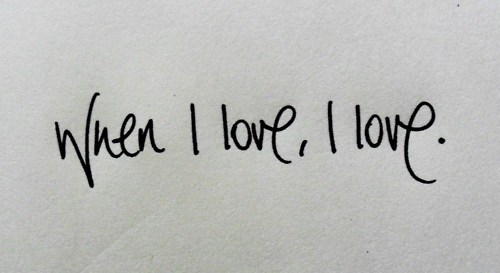 When I love, I love.